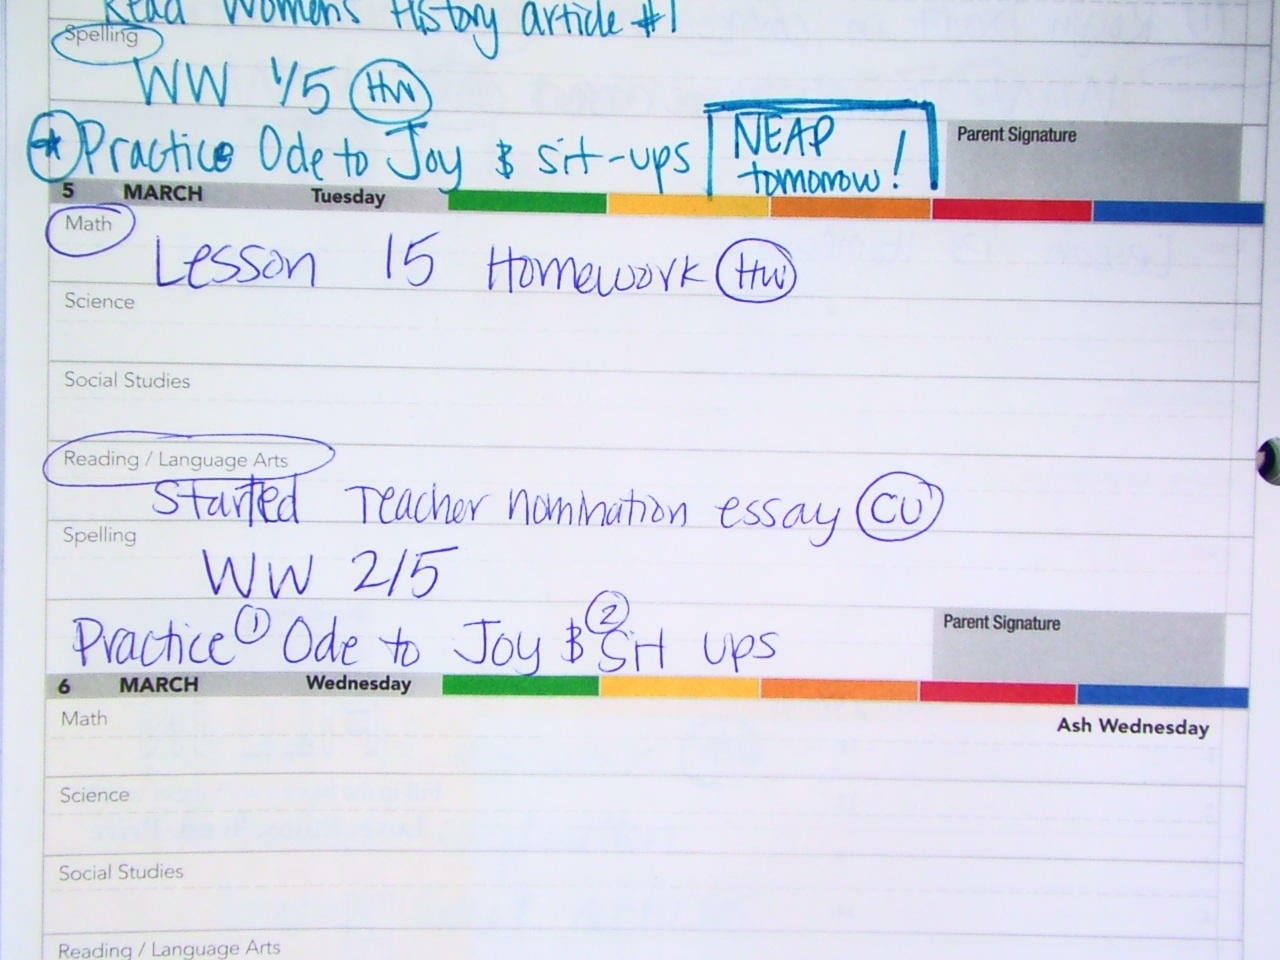 Read Women's History article #1
Spelling
WW 1/5 HW
* Practice Ode to Joy & sit-ups NEAP tomorrow! Parent Signature
5 MARCH Tuesday
Math
Lesson 15 Homework HW
Science
Social Studies
Reading / Language Arts
Started Teacher nomination essay CU
Spelling
WW 2/5
Practice ① Ode to Joy & ② Sit ups Parent Signature
6 MARCH Wednesday
Math Ash Wednesday
Science
Social Studies
Reading / Language Arts